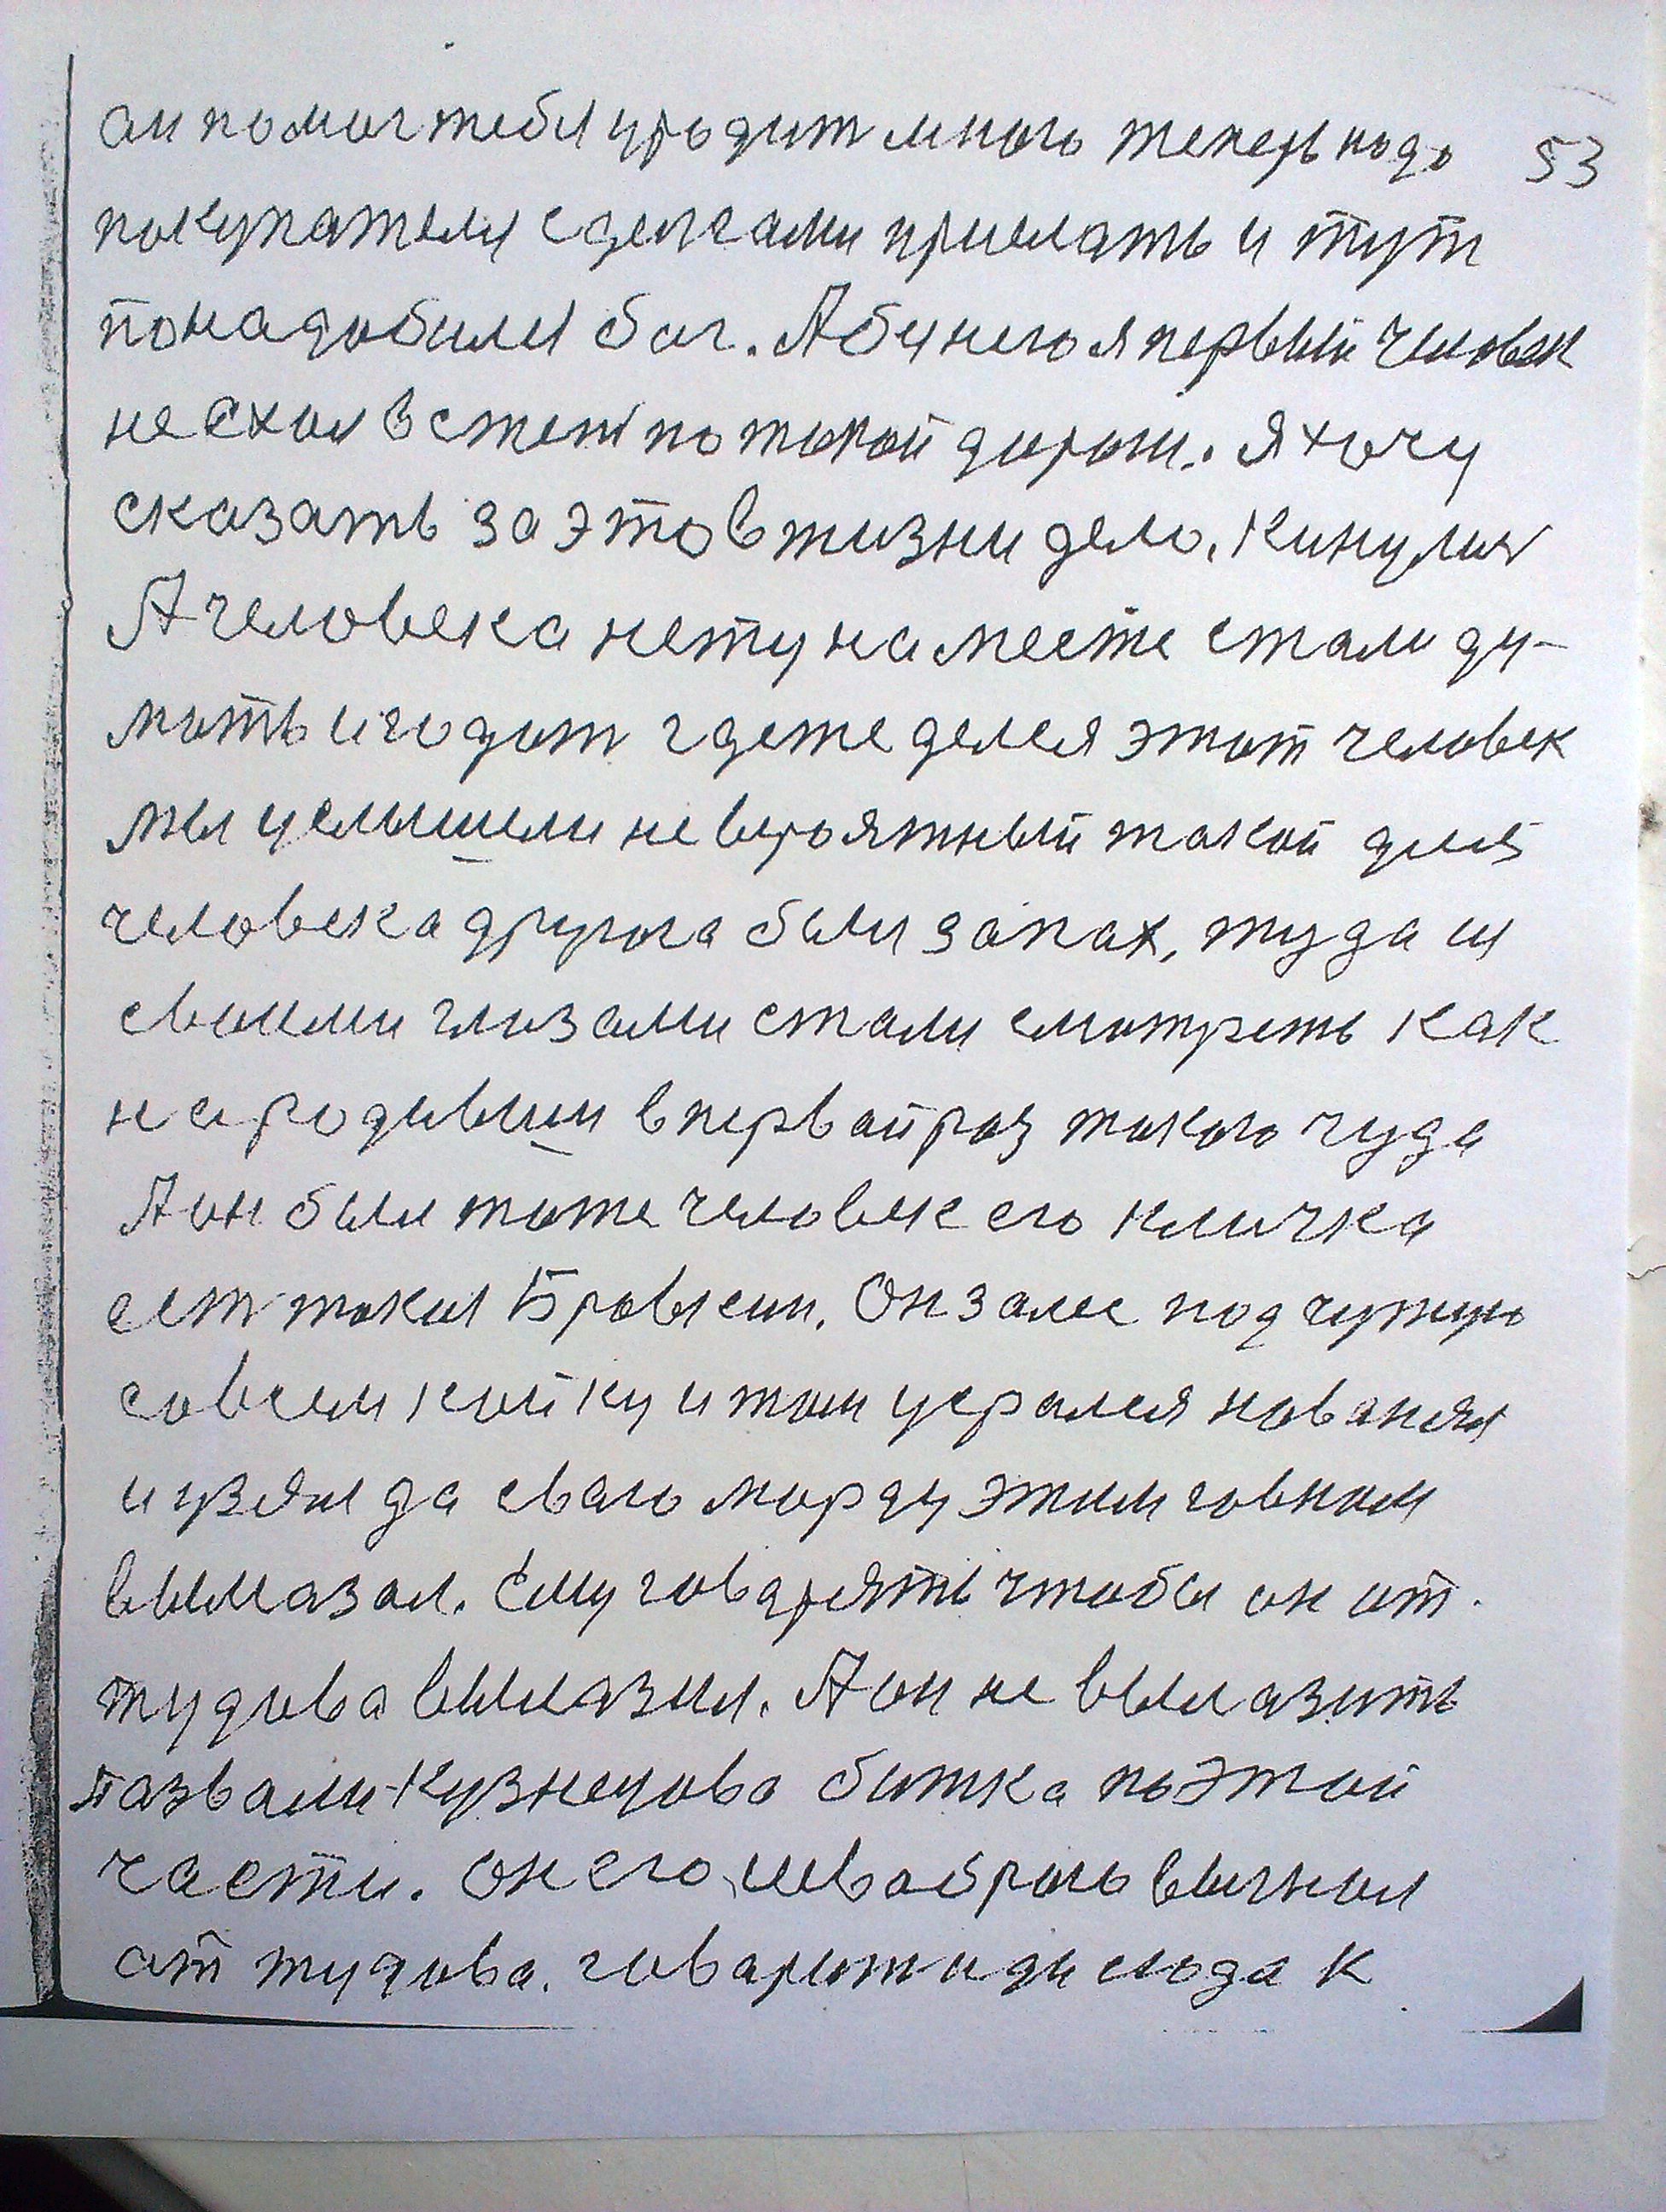 он помог тебя уродит много теперь надо 53
покупателя с деньгами прислать и тут
понадобился бог. Або у него я первый человек
не ехал в степи по такой дороги. Я хочу
сказать за это в жизни дело. Кинулися
А человека нету на месте стали ду-
мать и гадат где же делся этот человек
мы услышали невероятный такой для
человека другога были запах, туда и
своими глазами стали смотреть как
неародивши впервай раз такого чуда
А он был тоже человек его кличка
ест такия Бровкин. Он залес под чужую
совсем койку и там усрался наванял
и узял да сваю морду этим говном
вымазал. Ему говарять чтобы он от.
тудова вылазил. А он не вылазить
пазвали Кузнецова битка по этой
части. Он его шваброю выгнал
от тудова. говарит иди сюда к